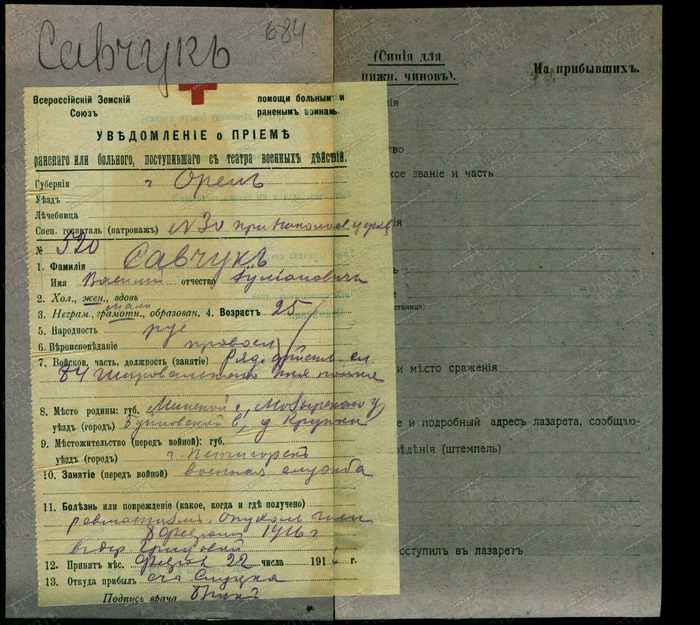 Савчукъ
684
(Синія для
нижн. чиновъ).
На прибывшихъ.
Всероссійскій Земскій
Союзъ
помощи больнымъ и
раненымъ воинамъ.
УВѢДОМЛЕНІЕ о ПРІЕМѢ
раненаго или больного, поступившаго съ театра военныхъ дѣйствій.
Губернія г Орелъ
Уѣздъ
Лѣчебница
Спец. госпиталь (патронажъ) N 30 при
№ 520
1. Фамилія Савчукъ
Имя Василій отчество
2. Хол., жен., вдовъ
мало
3. Неграм., грамотн., образован. 4. Возрастъ 25
5. Народность рус
6. Вѣроисповѣданіе правосл
7. Войсков. часть, должность (занятіе) Ряд.
84 Ширванскаго полка
8. Мѣсто родины: губ. Минской г, Мозырскаго у
уѣздъ (городъ) в, д Крупки
9. Мѣстожительство (передъ войной): губ.
уѣздъ (городъ) г. Пятигорскъ
10. Занятіе (передъ войной) военная служба
11. Болѣзнь или поврежденіе (какое, когда и гдѣ получено)
ревматизмъ
8 февраля 1916 г
12. Принятъ мѣс. Феврал 22 числа 191 г.
13. Откуда прибылъ ст Слуцка
Подпись врача
кое званіе и часть
и мѣсто сраженія
е и подробный адресъ лазарета, сообщаю-
вѣдѣнія (штемпель)
оступилъ въ лазаретъ